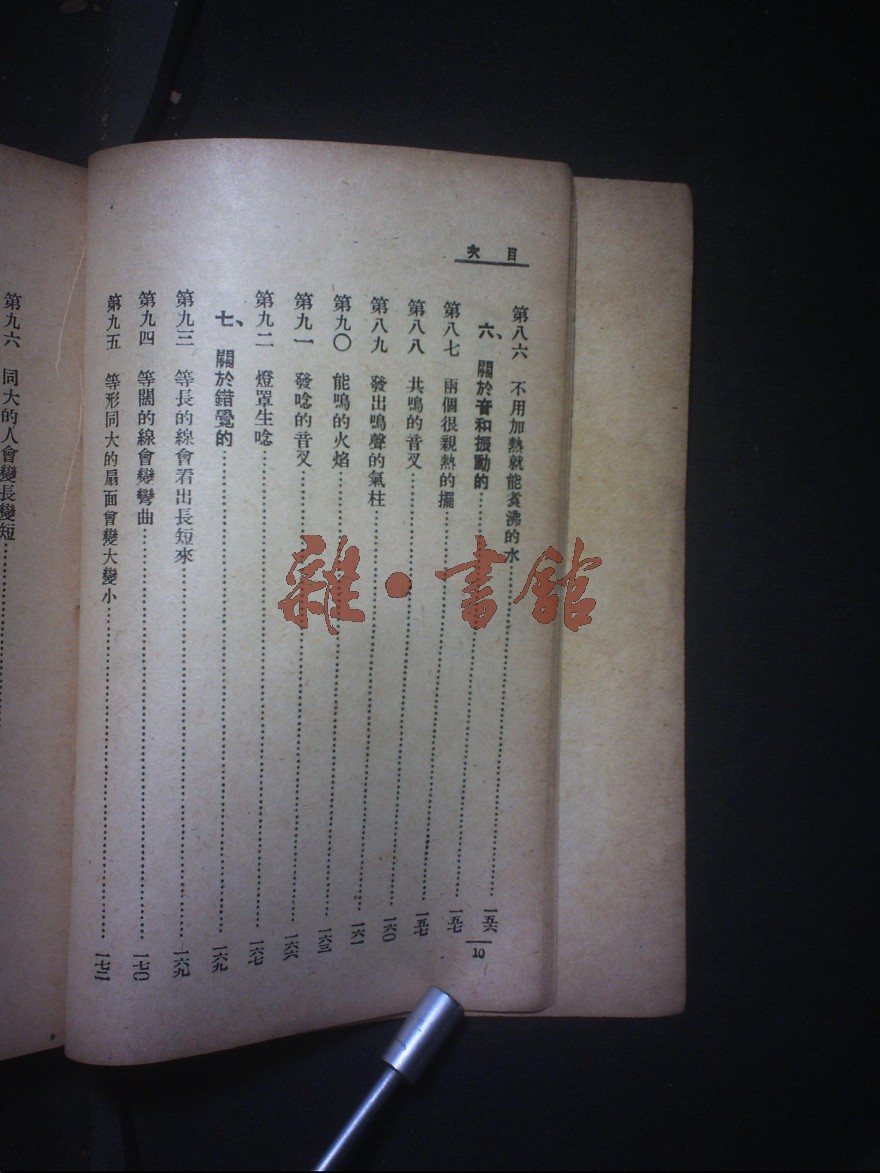 目次
第八六 不用加熱就能煮沸的水……一五六
六、關於音和振動的……一五七
第八七 兩個很親熱的擺……一五七
第八八 共鳴的音叉……一六〇
第八九 發出鳴聲的氣柱……一六一
第九〇 能鳴的火焰……一六三
第九一 發唸的音叉……一六六
第九二 燈罩生唸……一六七
七、關於錯覺的……一六九
第九三 等長的線會看出長短來……一六九
第九四 等闊的線會變彎曲……一七〇
第九五 等形同大的扇面會變大變小……一七二
10
第九六 同大的人會變長變短……
雜·書館